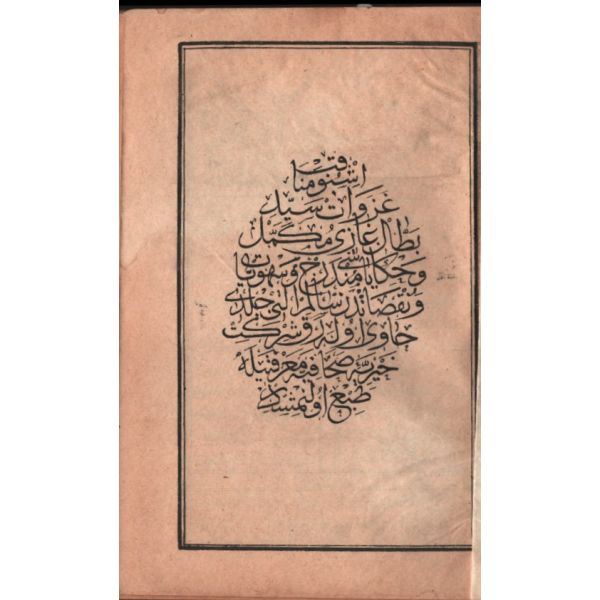 اشبو مناقب
غزوات سيد
بطال غازى مكمل
و حكاياتى مندرج و سهويات
و نقصاندن سالم آلتى جلدى
حاوى اوله رق شركت
خيريه صحافيه معرفتيله
طبع اولنمشدر